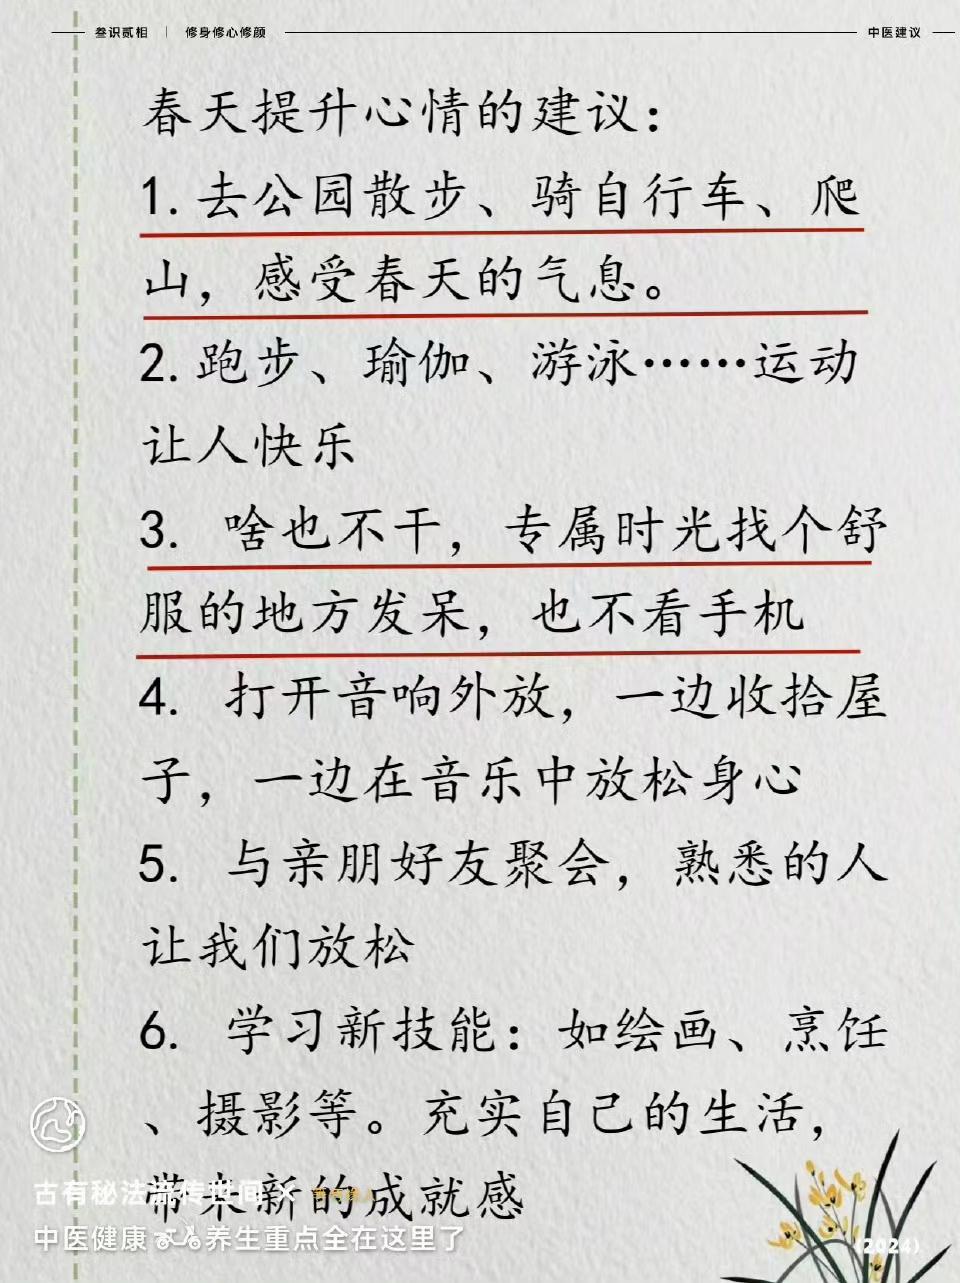 叁识贰相 | 修身修心修颜 中医建议
春天提升心情的建议：
1. 去公园散步、骑自行车、爬
山，感受春天的气息。
2. 跑步、瑜伽、游泳……运动
让人快乐
3. 啥也不干，专属时光找个舒
服的地方发呆，也不看手机
4. 打开音响外放，一边收拾屋
子，一边在音乐中放松身心
5. 与亲朋好友聚会，熟悉的人
让我们放松
6. 学习新技能：如绘画、烹饪
、摄影等。充实自己的生活，
带来新的成就感
古有秘法流传世间
中医健康 养生重点全在这里了
(2024)